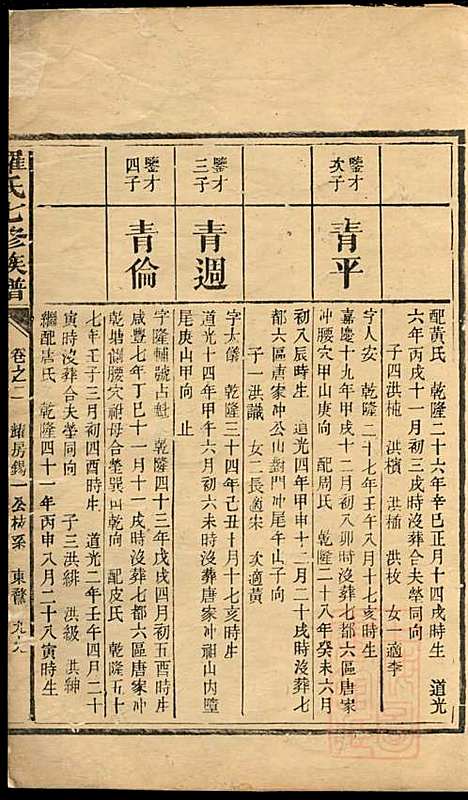 配黃氏　乾隆二十六年辛巳正月十四戌時生　道光
六年丙戌十一月初三戌時沒葬合夫塋同向
子四洪柂　洪檳　洪插　洪枚　女一適李
鑒才次子
青平
字人安　乾隆二十七年壬午八月十七亥時生
嘉慶十九年甲戌十二月初八卯時沒葬七都六區唐家
冲腰穴甲山庚向　配周氏　乾隆二十八年癸未六月
初八辰時生　道光四年甲申十二月二十戌時沒葬七
都六區唐家冲公山對門冲尾午山子向
子一洪議　女二長適宋　次適黃
鑒才三子
青週
字太儀　乾隆三十四年己丑十月十七亥時生
道光十四年甲午六月初六未時沒葬唐家冲祖山內墮
尾庚山甲向　止
鑒才四子
青倫
字隆輔號占魁　乾隆四十三年戊戌四月初五酉時生
咸豐七年丁巳十一月十一戌時沒葬七都六區唐家冲
乾塘側腰穴祔母合塋巽山乾向　配皮氏　乾隆五十
七年壬子三月初四酉時生　道光二年壬午四月二十
寅時沒葬合夫塋同向　子三洪緋　洪級　洪紳
繼配唐氏　乾隆四十一年丙申八月二十八寅時生
羅氏七修族譜
卷之二　鯺房錫一公枝系　東鰲　九十八